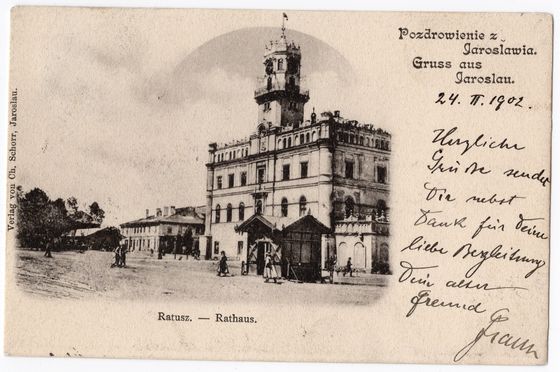 Pozdrowienie z
Jarosławia.
Gruss aus
Jaroslau.
24. II. 1902.
Herzliche
Grüße sendet
Dir nebst
Dank für Deine
liebe Begleitung
Dein alter
Freund
Franz
Verlag von Ch. Schorr, Jaroslau.
Ratusz. — Rathaus.